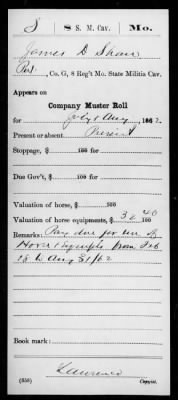 S 8 S. M. Cav. Mo.
James D Shaw
Pvt., Co. G, 8 Reg't Mo. State Militia Cav.
Appears on
Company Muster Roll
for July & Aug, 1862.
Present or absent Present
Stoppage, $ 100 for
Due Gov't, $ 100 for
Valuation of horse, $ 100
Valuation of horse equipments, $ 32 40 100
Remarks: Pay due for use of
Horse & Equipts from Feb
18 to Aug 31/62
Book mark:
Lawrence
(358) Copyist.